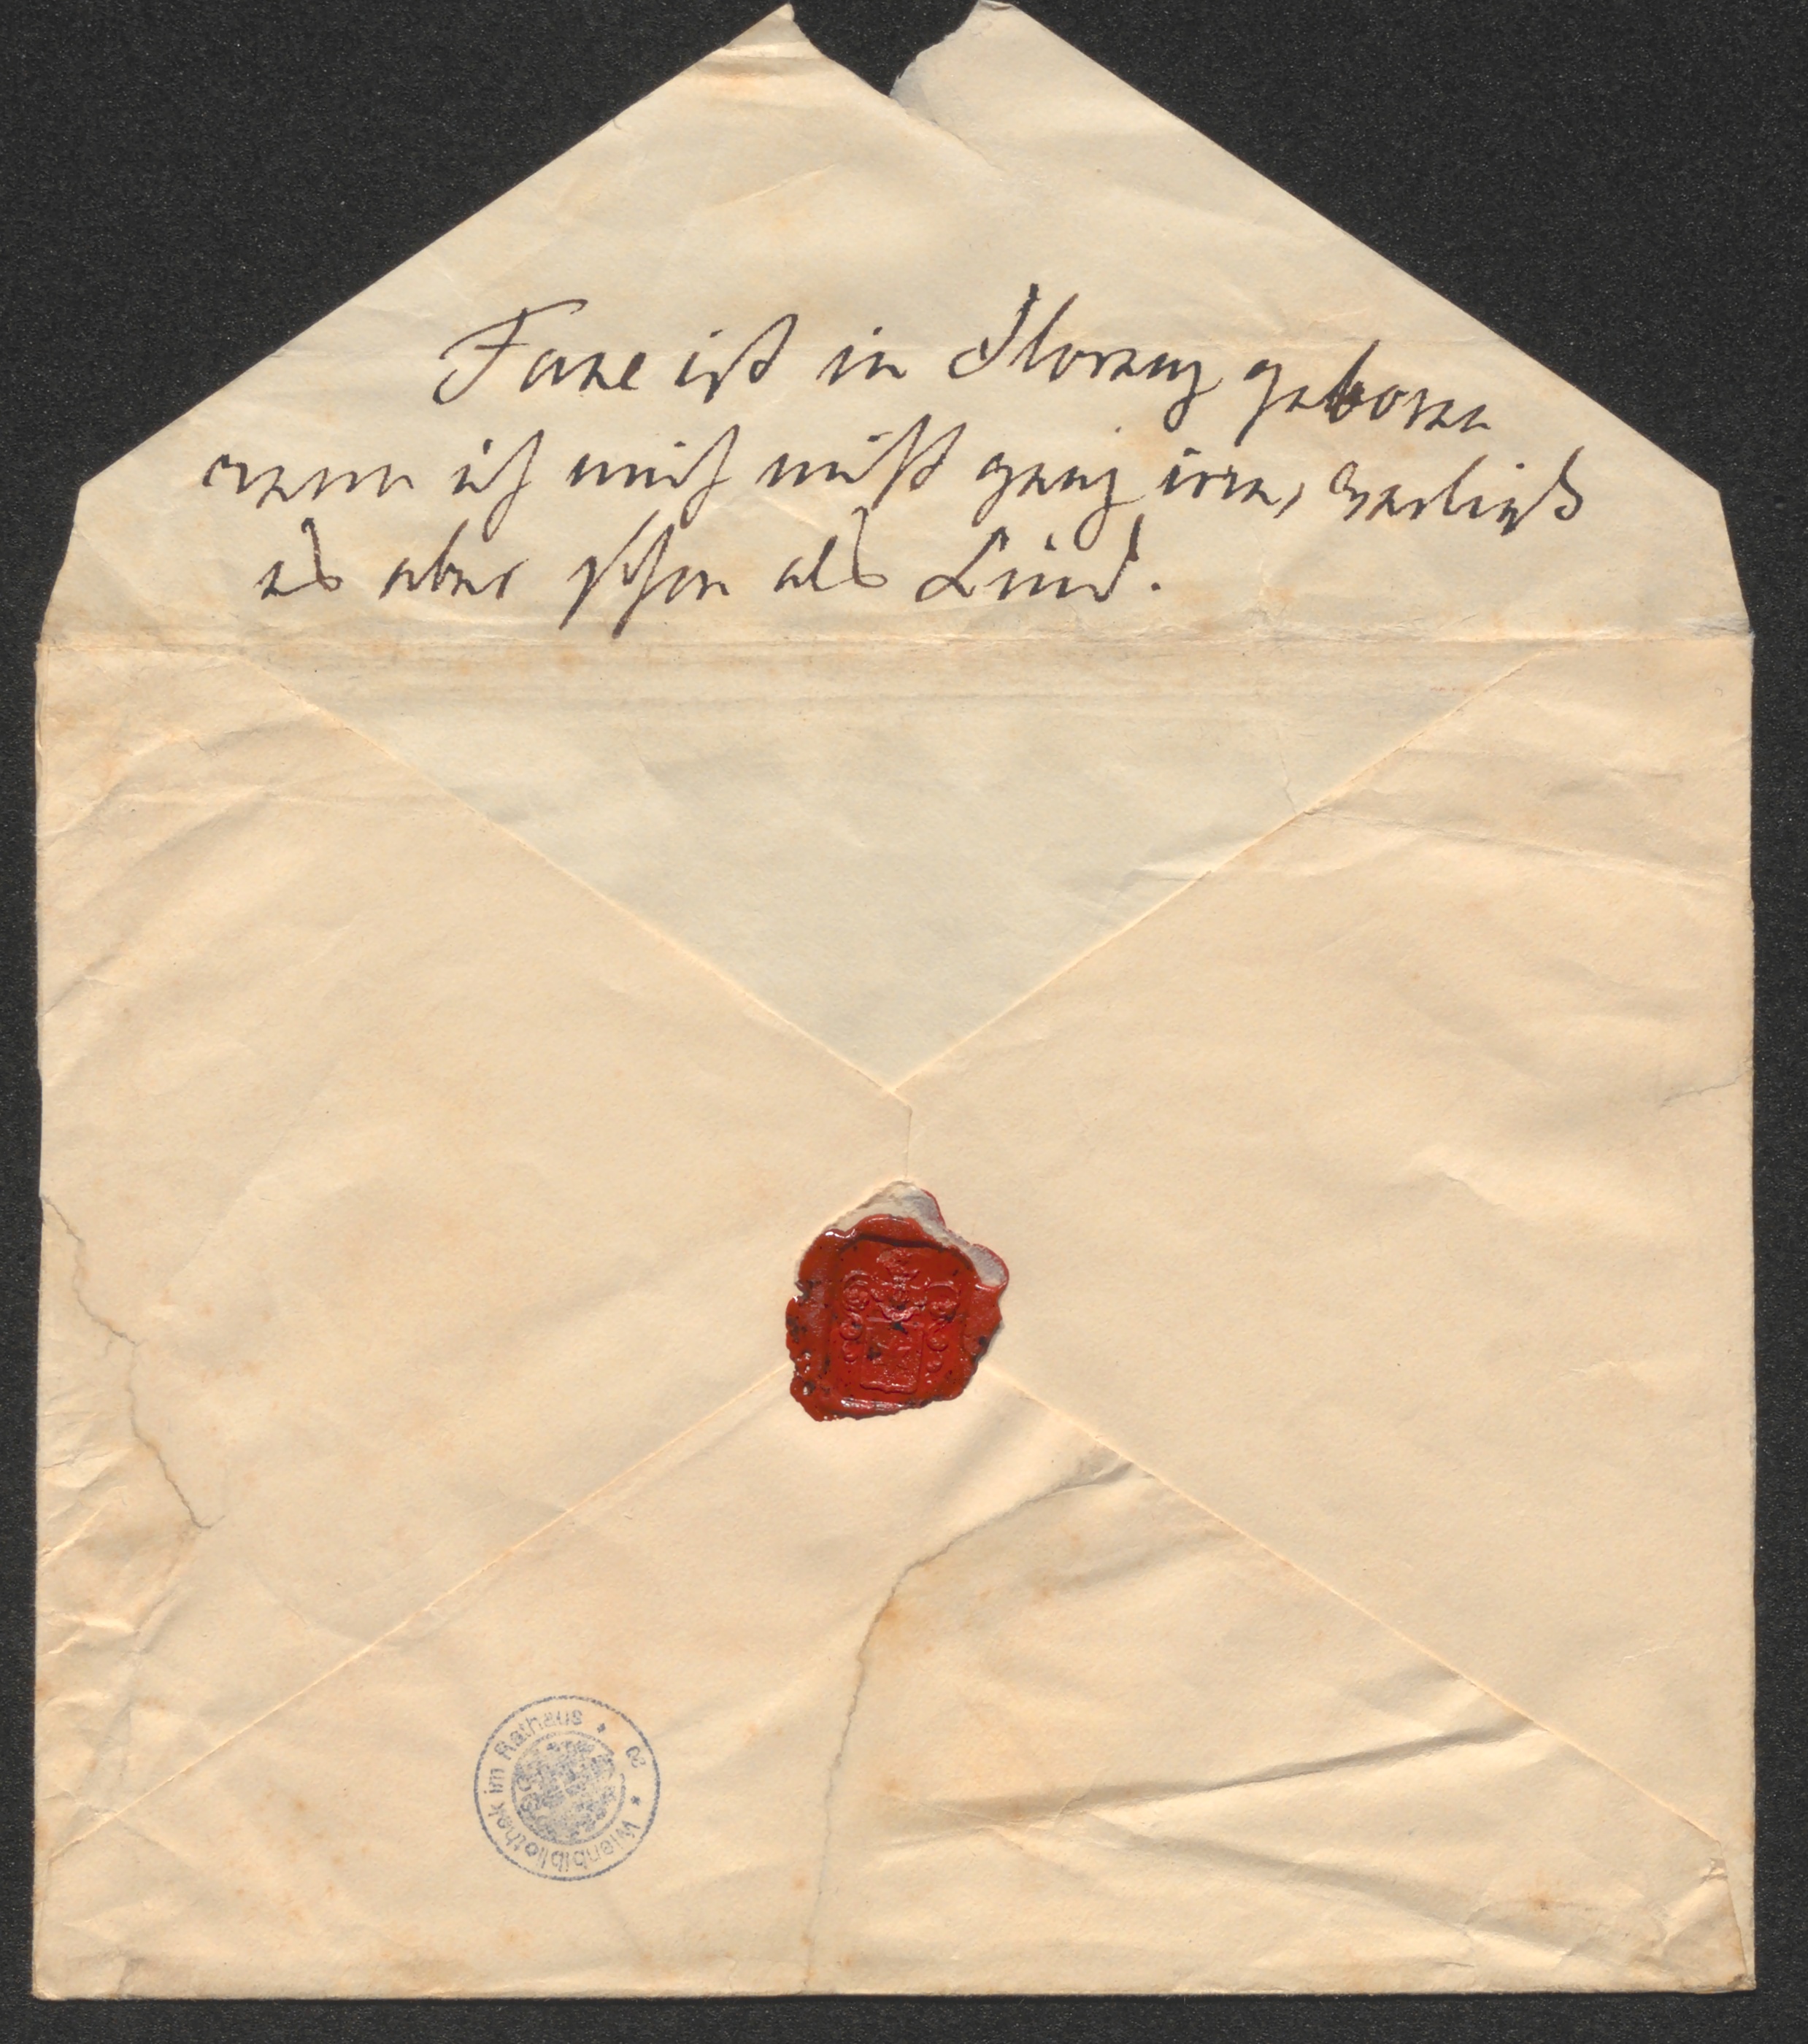 Fane ist in Florenz geboren
wenn ich mich nicht ganz irre, verließ
es aber schon als Kind.
Wienbibliothek im Rathaus